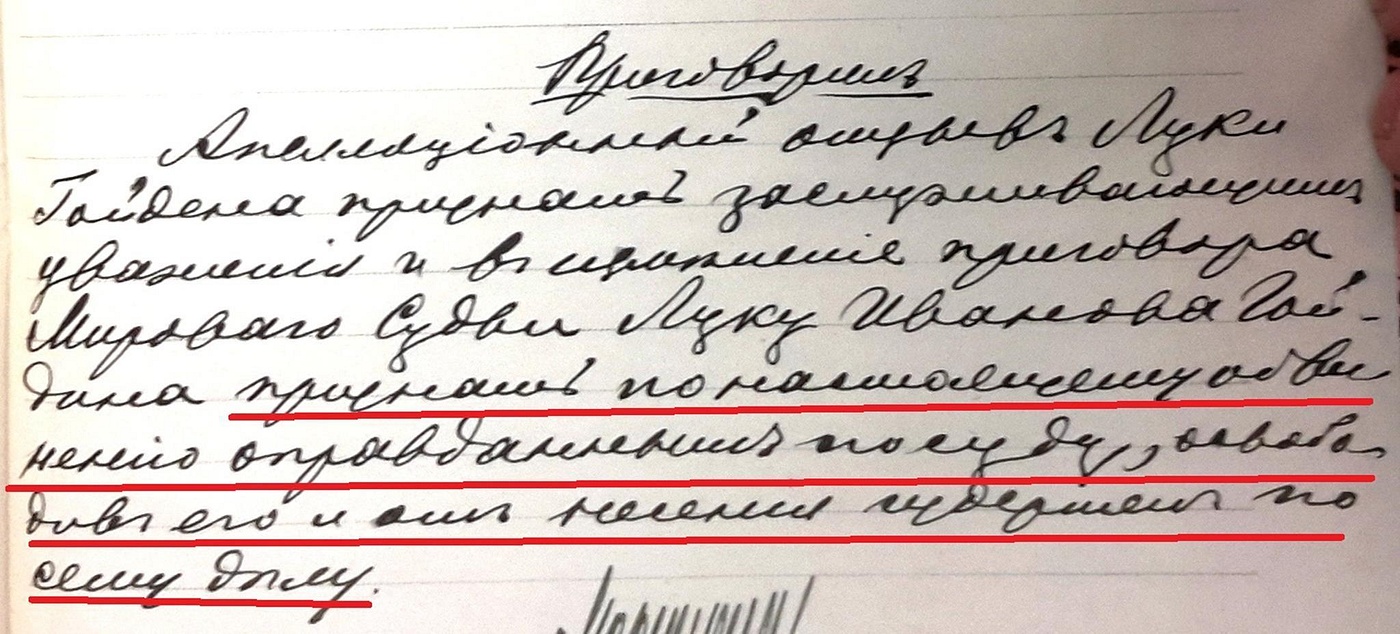 Приговорилъ
Апелляціонный отзывъ Луки
Гойдена признать заслуживающимъ
уваженія и въ измѣненіе приговора
Мироваго Судьи Луку Иванова Гой-
дина признать по настоящему обви
ненію оправданнымъ по суду, освобо
дивъ его и отъ несенія издержекъ по
сему дѣлу.